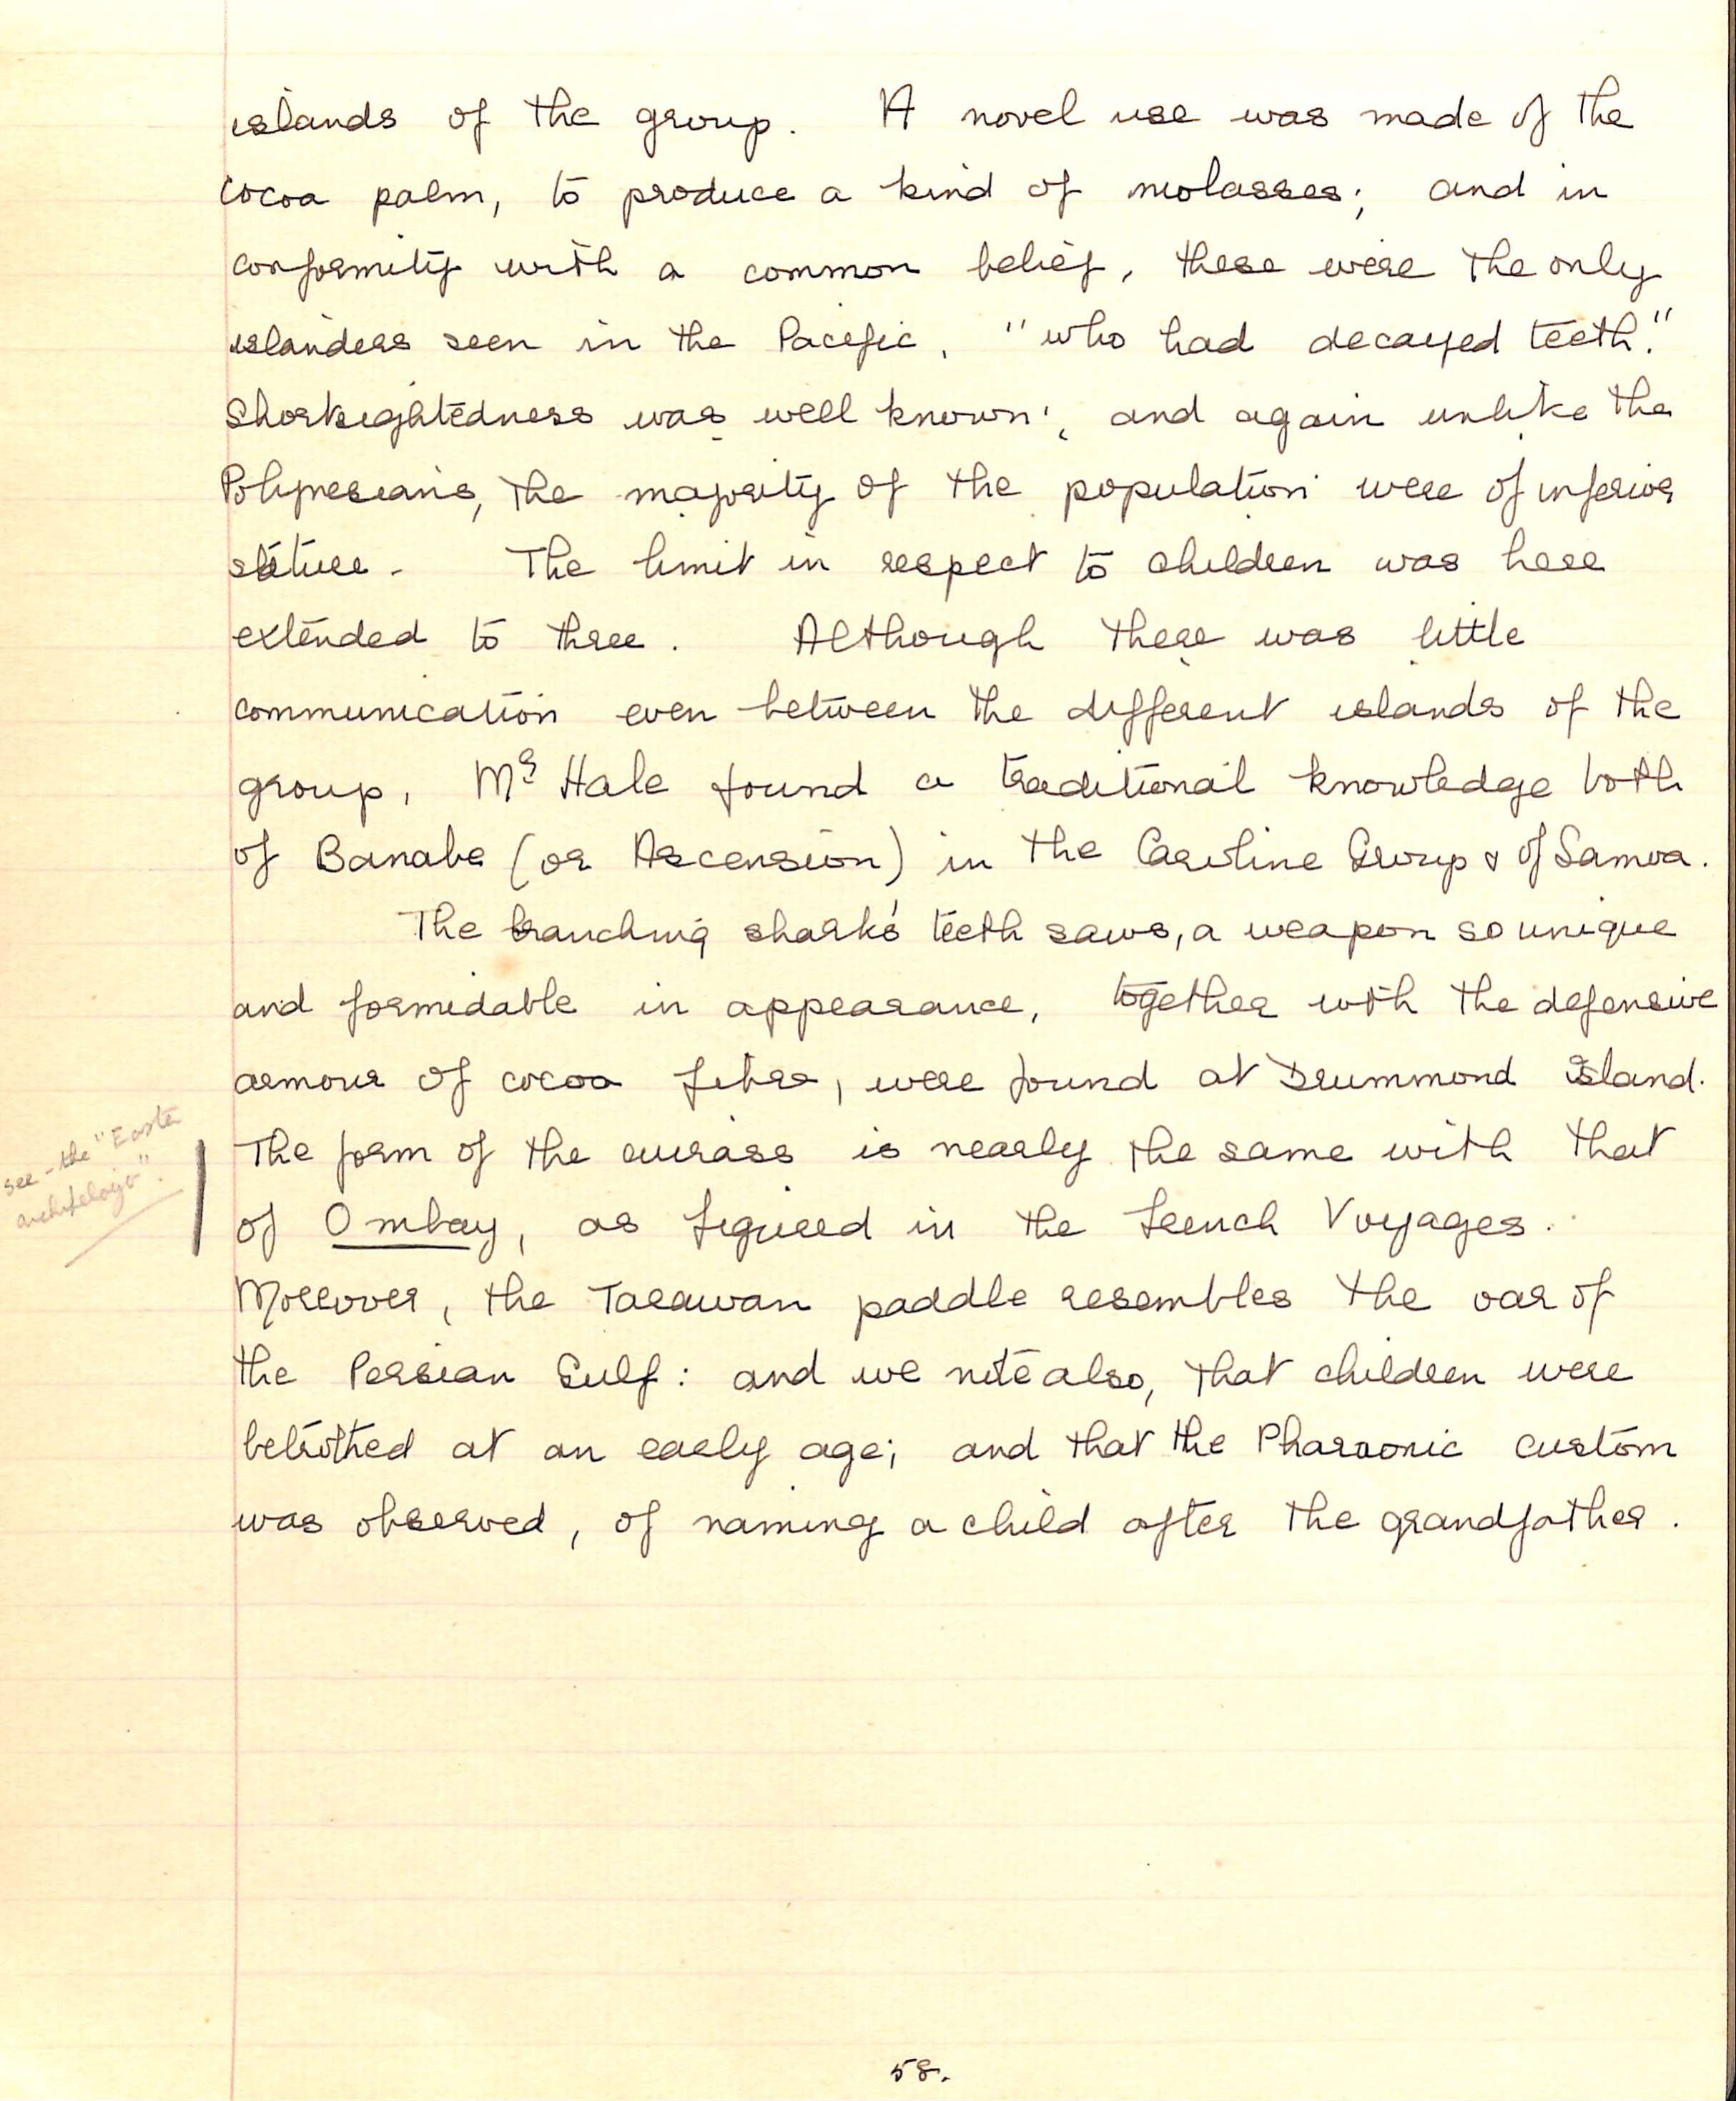 islands of the group. A novel use was made of the
cocoa palm, to produce a kind of molasses; and in
conformity with a common belief, these were the only
islanders seen in the Pacific, "who had decayed teeth."
Shortsightedness was well known; and again unlike the
Polynesians, the majority of the population were of inferior
stature. The limit in respect to children was here
extended to three. Although there was little
communication even between the different islands of the
group, Mr Hale found a traditional knowledge both
of Banabe (or Ascension) in the Caroline Group & of Samoa.
The branching shark's teeth saws, a weapon so unique
and formidable in appearance, together with the defensive
armour of cocoa fibre, were found at Drummond island.
see - the "Easter
archipelago".
The form of the cuirass is nearly the same with that
of Ombay, as figured in the French Voyages.
Moreover, the Tarawan paddle resembles the oar of
the Persian Gulf: and we note also, that children were
betrothed at an early age; and that the Pharaonic custom
was observed, of naming a child after the grandfather.
58.